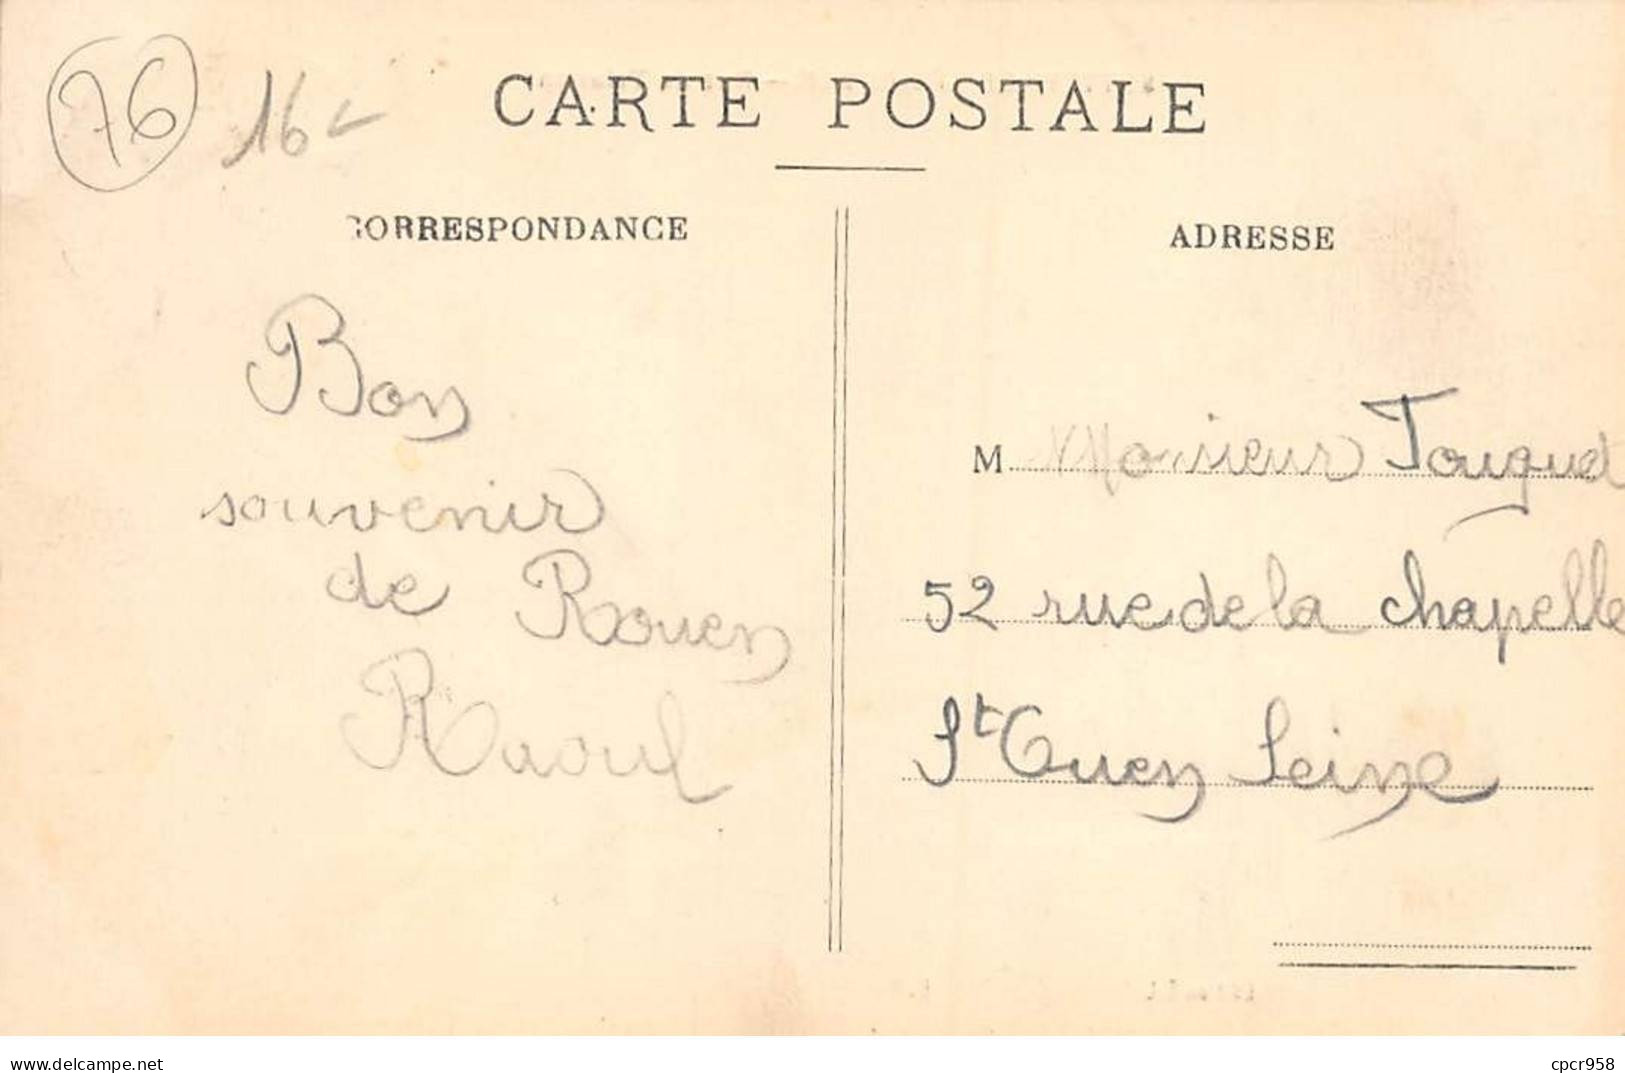 76 16
CARTE POSTALE
CORRESPONDANCE
ADRESSE
Bon
souvenir
de Rouen
Raoul
M Monsieur Touquet
52 rue de la chapelle
St Ouen Seine
www.delcampe.net
cpcr958